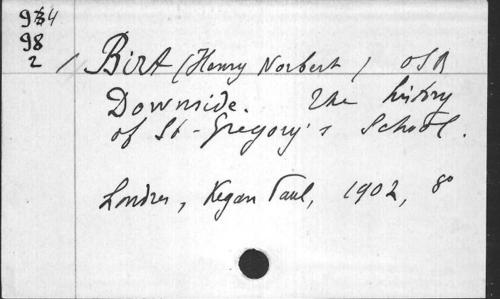 934
98
2 / Birt (Henry Norbert) OSB
Downside. The history
of St-Gregory's School.
Londres, Kegan Paul, 1902, 8°